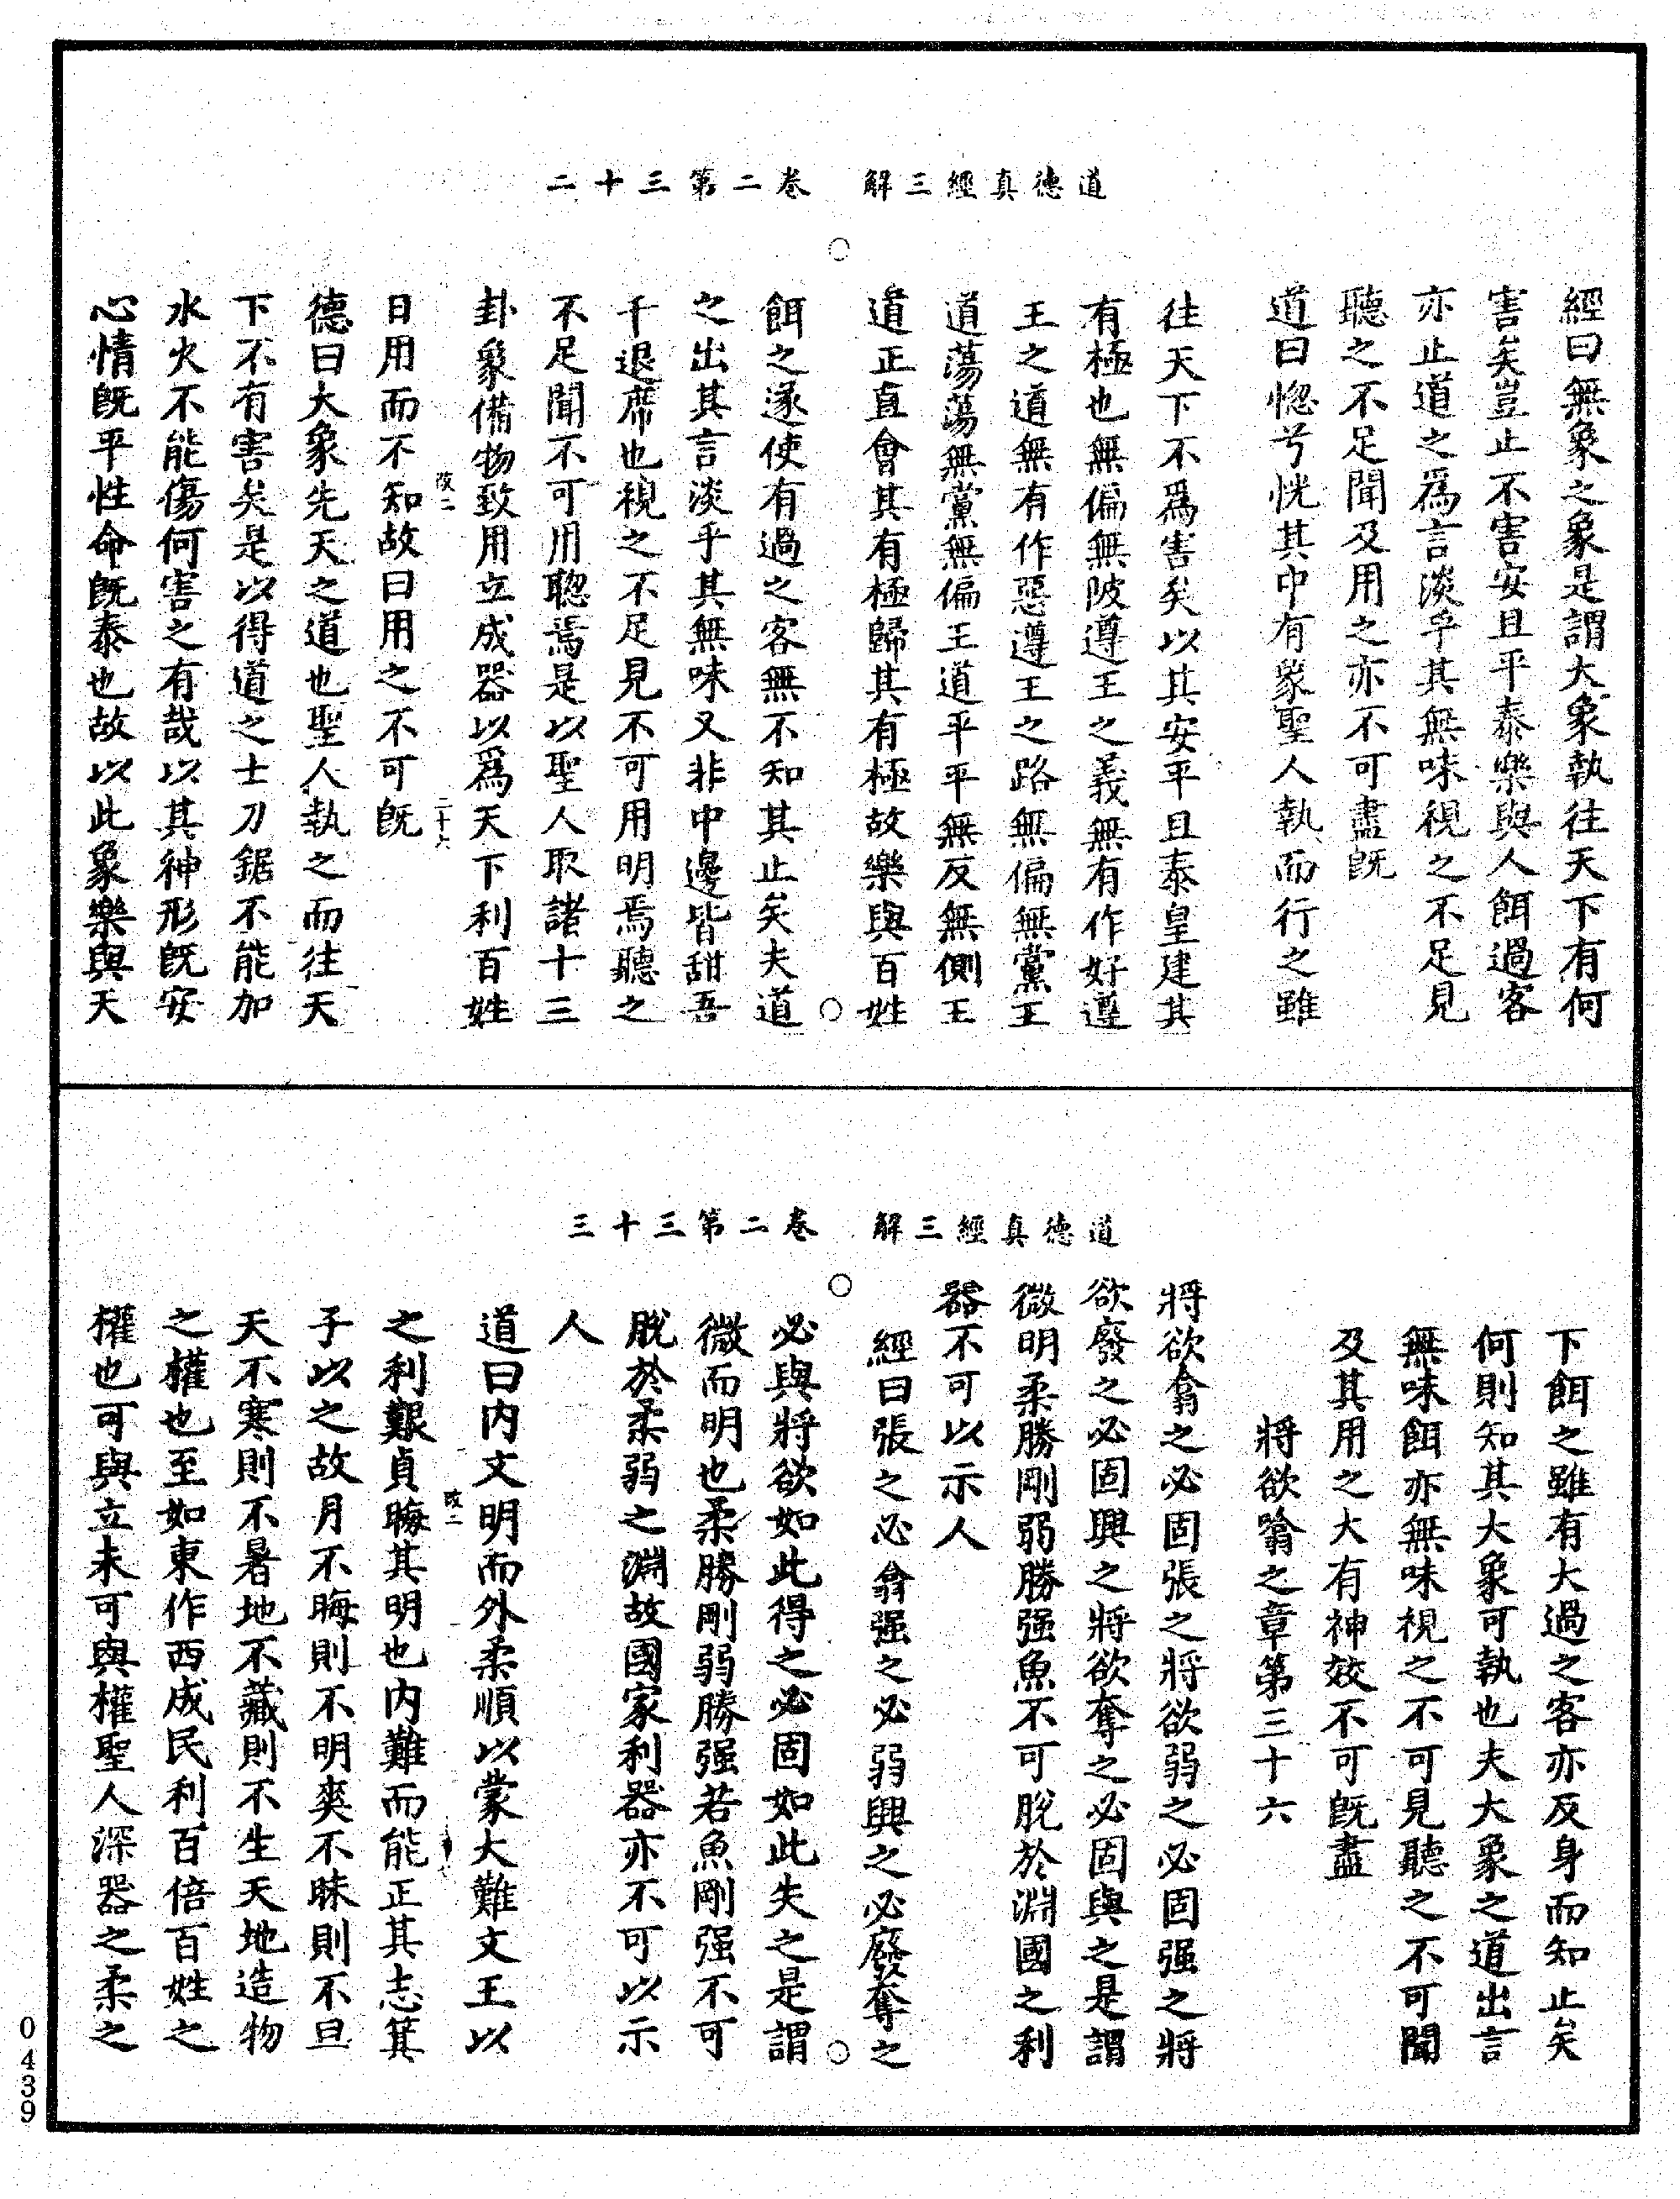 道德真經三解　卷二第三十二
經曰無象之象是謂大象執往天下有何
害矣豈止不害安且平泰樂與人餌過客
亦止道之爲言淡乎其無味視之不足見
聽之不足聞及用之亦不可盡旣
道曰惚兮恍其中有象聖人執而行之雖
往天下不爲害矣以其安平且泰皇建其
有極也無偏無陂遵王之義無有作好遵
王之道無有作惡遵王之路無偏無黨王
道蕩蕩無黨無偏王道平平無反無側王
道正直會其有極歸其有極故樂與百姓
餌之遂使有過之客無不知其止矣夫道
之出其言淡乎其無味又非中邊皆甜吾
千退席也視之不足見不可用明焉聽之
不足聞不可用聰焉是以聖人取諸十三
卦象備物致用立成器以爲天下利百姓
改二　二十六
日用而不知故曰用之不可旣
德曰大象先天之道也聖人執之而往天
下不有害矣是以得道之士刀鋸不能加
水火不能傷何害之有哉以其神形旣安
心情旣平性命旣泰也故以此象樂與天
道德真經三解　卷二第三十三
下餌之雖有大過之客亦反身而知止矣
何則知其大象可執也夫大象之道出言
無味餌亦無味視之不可見聽之不可聞
及其用之大有神效不可旣盡
將欲噏之章第三十六
將欲翕之必固張之將欲弱之必固强之將
欲廢之必固興之將欲奪之必固與之是謂
微明柔勝剛弱勝强魚不可脫於淵國之利
器不可以示人
經曰張之必翕强之必弱興之必廢奪之
必與將欲如此得之必固如此失之是謂
微而明也柔勝剛弱勝强若魚剛强不可
脫於柔弱之淵故國家利器亦不可以示
人
道曰内文明而外柔順以蒙大難文王以
改二
之利艱貞晦其明也内難而能正其志箕
子以之故月不晦則不明爽不昧則不旦
天不寒則不暑地不藏則不生天地造物
之權也至如東作西成民利百倍百姓之
權也可與立未可與權聖人深器之柔之
0439